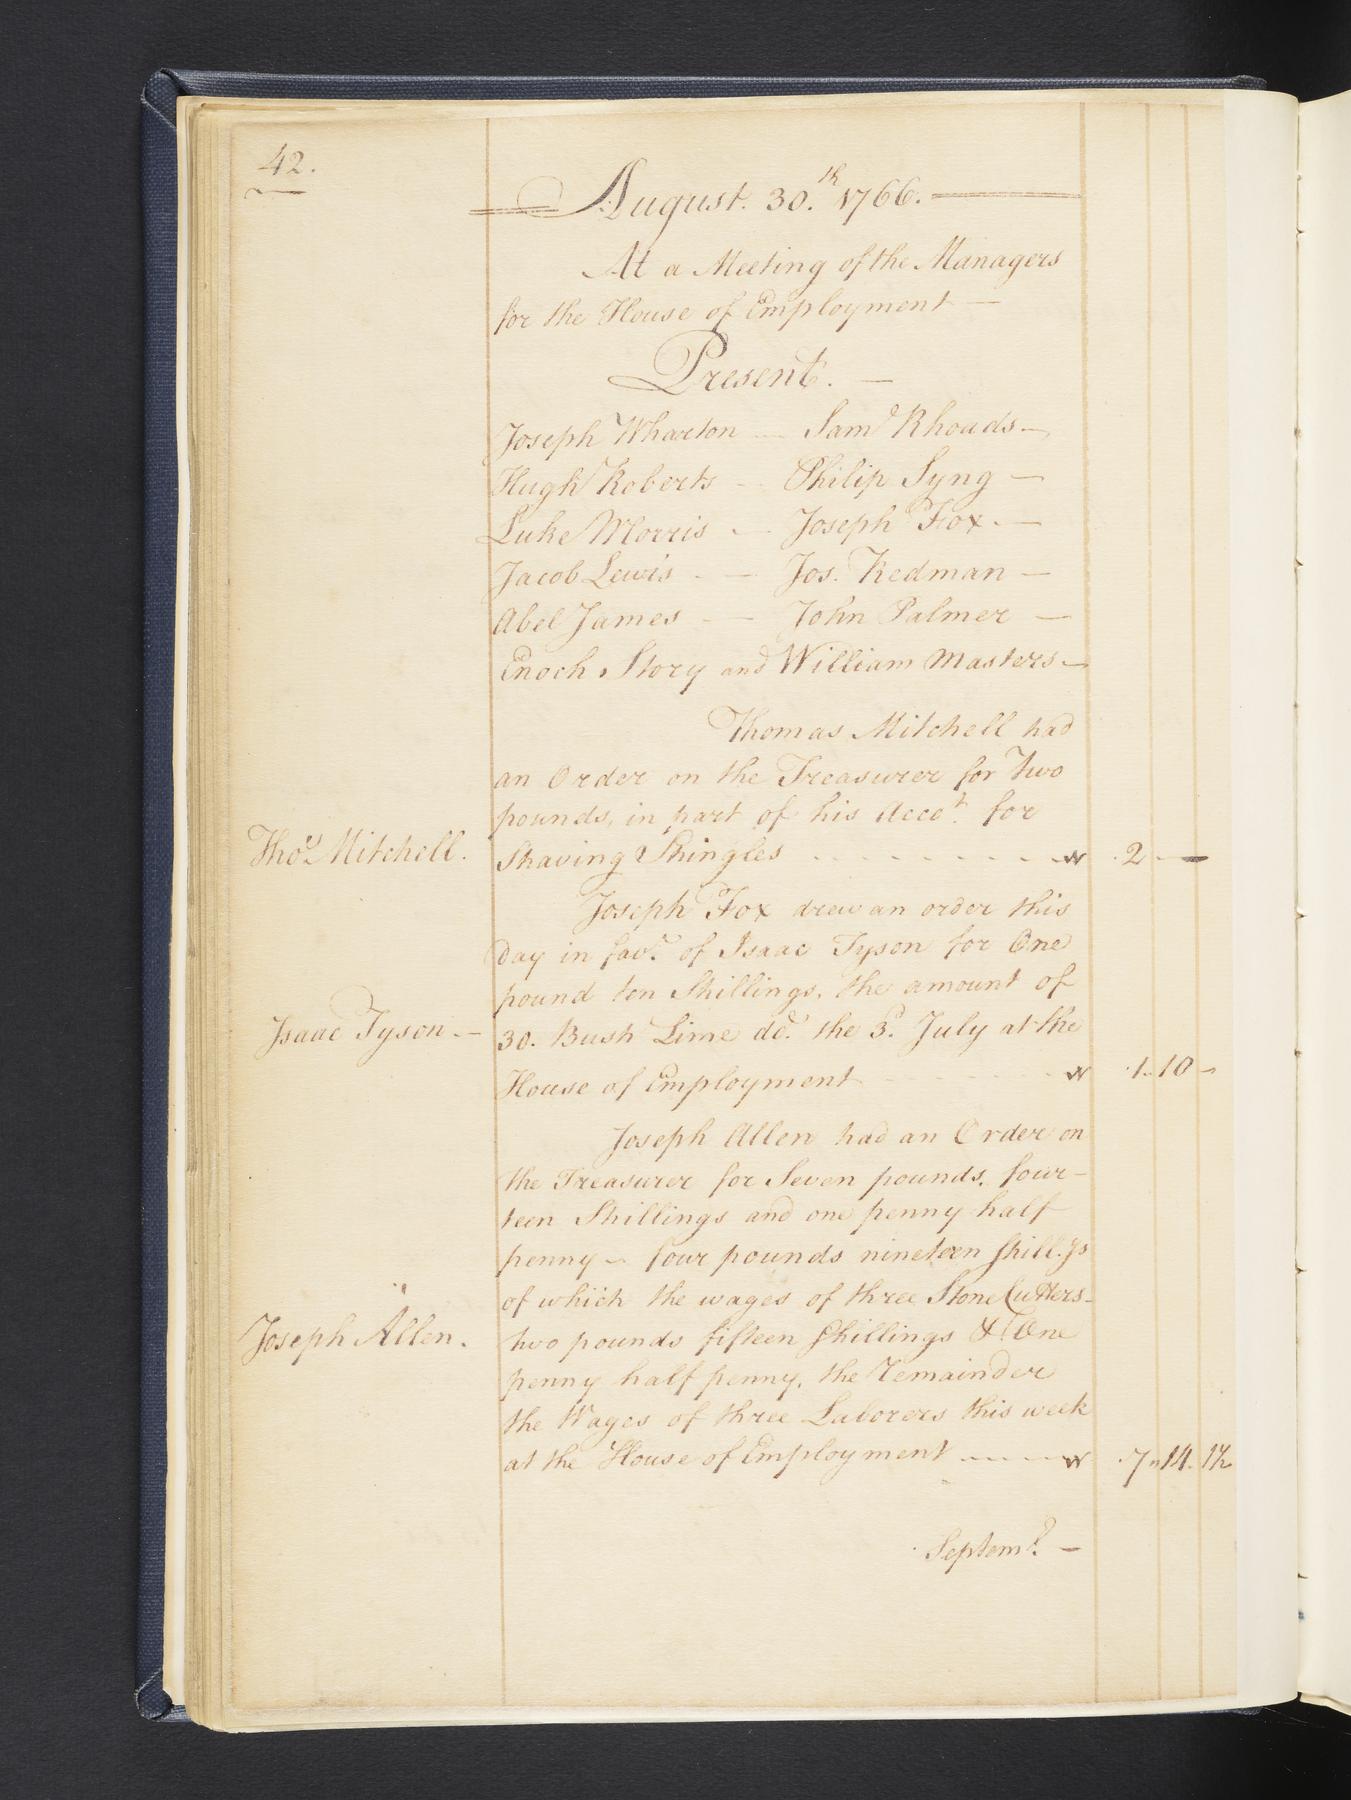 42.
August. 30.th 1766.
At a Meeting of the Managers
for the House of Employment —
Present. —
Joseph Wharton — Saml Rhoads —
Hugh Roberts — Philip Syng —
Luke Morris — Joseph Fox. —
Jacob Lewis - — Jos. Redman —
Abel James - — John Palmer —
Enoch Story and William Masters —
Thomas Mitchell had
an Order on the Treasurer for Two
pounds, in part of his Acco.t for
Thos. Mitchell. Shaving Shingles - - - - - - - - - 2 - —
Joseph Fox drew an order this
Day in favr. of Isaac Tyson for One
pound ten Shillings, the amount of
Isaac Tyson. — 30. Bush Lime dd. the 3d. July at the
House of Employment - - - - - 1 - 10 -
Joseph Allen had an Order on
the Treasurer for Seven pounds, four-
teen Shillings and one penny half
penny — four pounds nineteen shill.gs
of which the wages of three Stone Cutters -
Joseph Allen. two pounds fifteen Shillings & One
penny half penny, the Remainder
the Wages of three Laborers this week
at the House of Employment - - - - 7 " 14 - 1½
Septemr. —